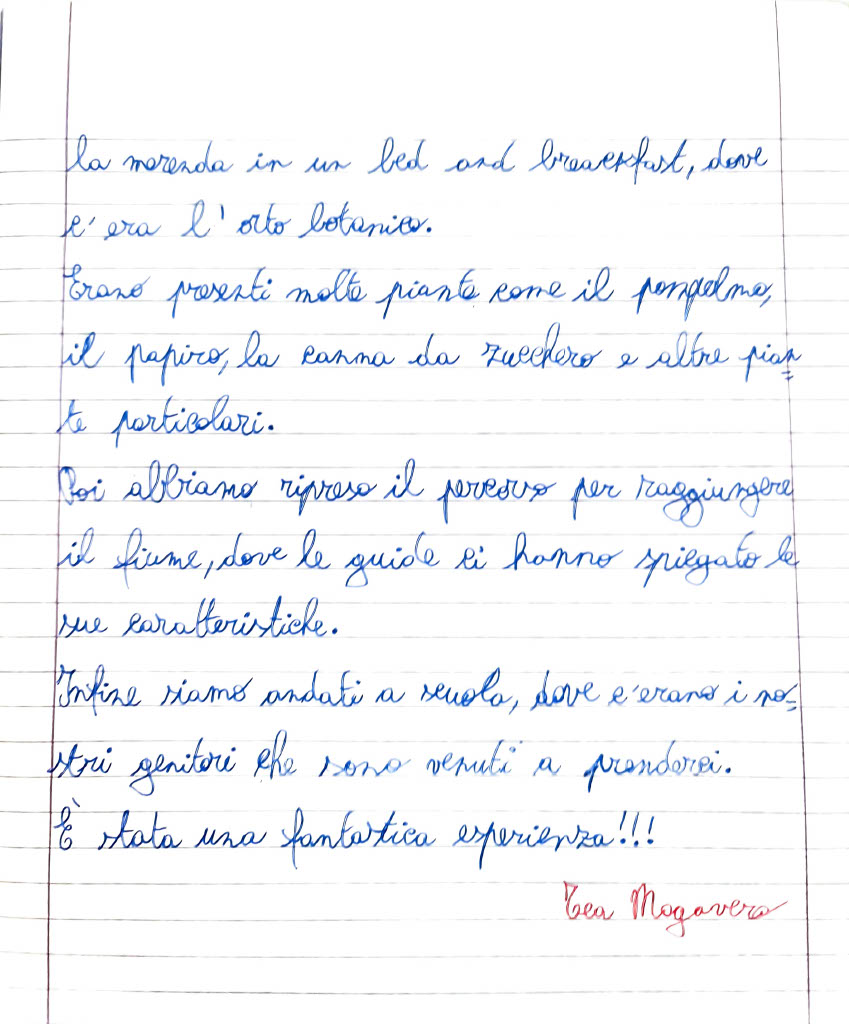 la merenda in un bed and breaekfast, dove
c'era l'orto botanico.
Erano presenti molte piante come il pompelmo,
il papiro, la canna da zucchero e altre pian=
te particolari.
Poi abbiamo ripreso il percorso per raggiungere
il fiume, dove le guide ci hanno spiegato le
sue caratteristiche.
Infine siamo andati a scuola, dove c'erano i no=
stri genitori che sono venuti a prenderci.
È stata una fantastica esperienza!!!
Tea Mogavero